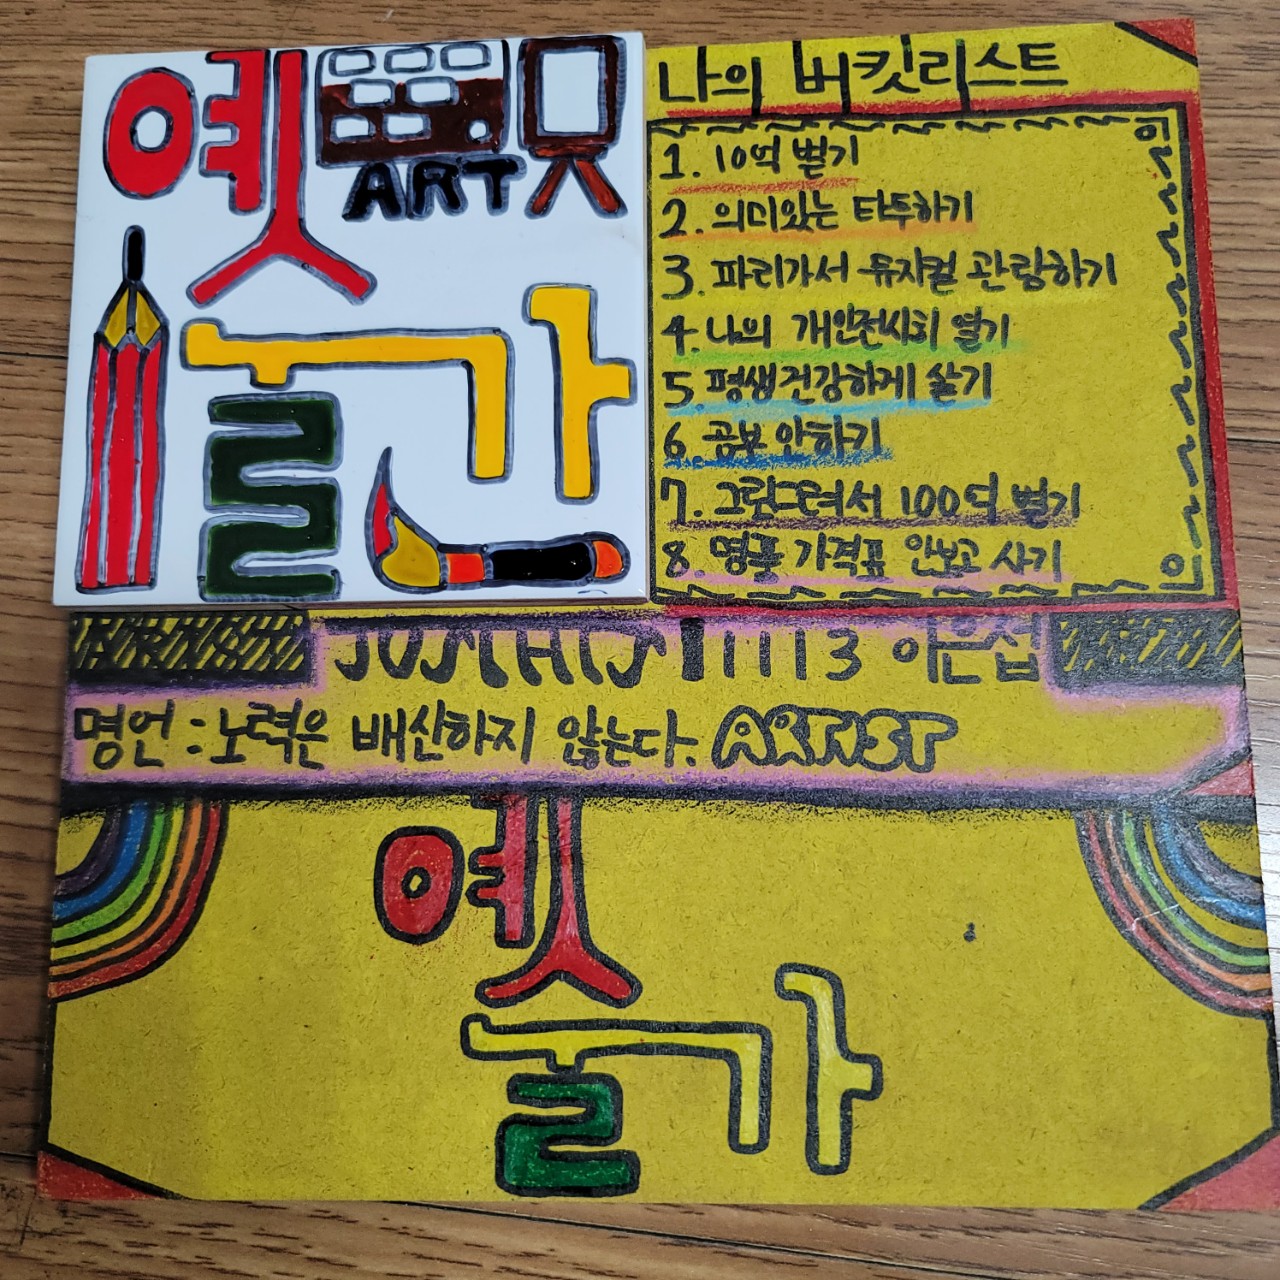 예술가
ART
나의 버킷리스트
1. 10억 벌기
2. 의미있는 타투하기
3. 파리가서 뮤지컬 관람하기
4. 나의 개인전시회 열기
5. 평생건강하게 살기
6. 공부 안하기
7. 그림그려서 100억 벌기
8. 명품 가격표 안보고 사기
이은섭
명언 : 노력은 배신하지 않는다. ARTIST
예술가